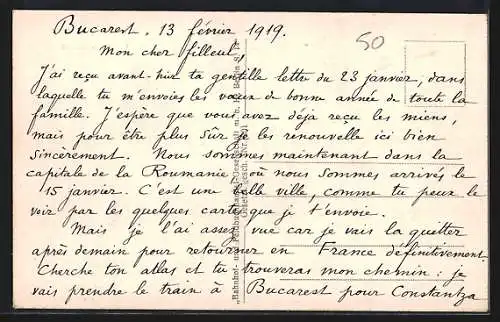 Bucarest, 13 février 1919.
50
Mon cher filleul,
J'ai reçu avant-hier ta gentille lettre du 23 janvier, dans
laquelle tu m'envoies les vœux de bonne année de toute la
famille. J'espère que vous avez déjà reçu les miens,
mais pour être plus sûr je les renouvelle ici bien
sincèrement. Nous sommes maintenant dans la
capitale de la Roumanie où nous sommes arrivés le
15 janvier. C'est une belle ville, comme tu peux le
voir par les quelques cartes que je t'envoie.
Mais je l'ai assez vue car je vais la quitter
après demain pour retourner en France définitivement.
Cherche ton atlas et tu trouveras mon chemin : je
vais prendre le train à Bucarest pour Constantza